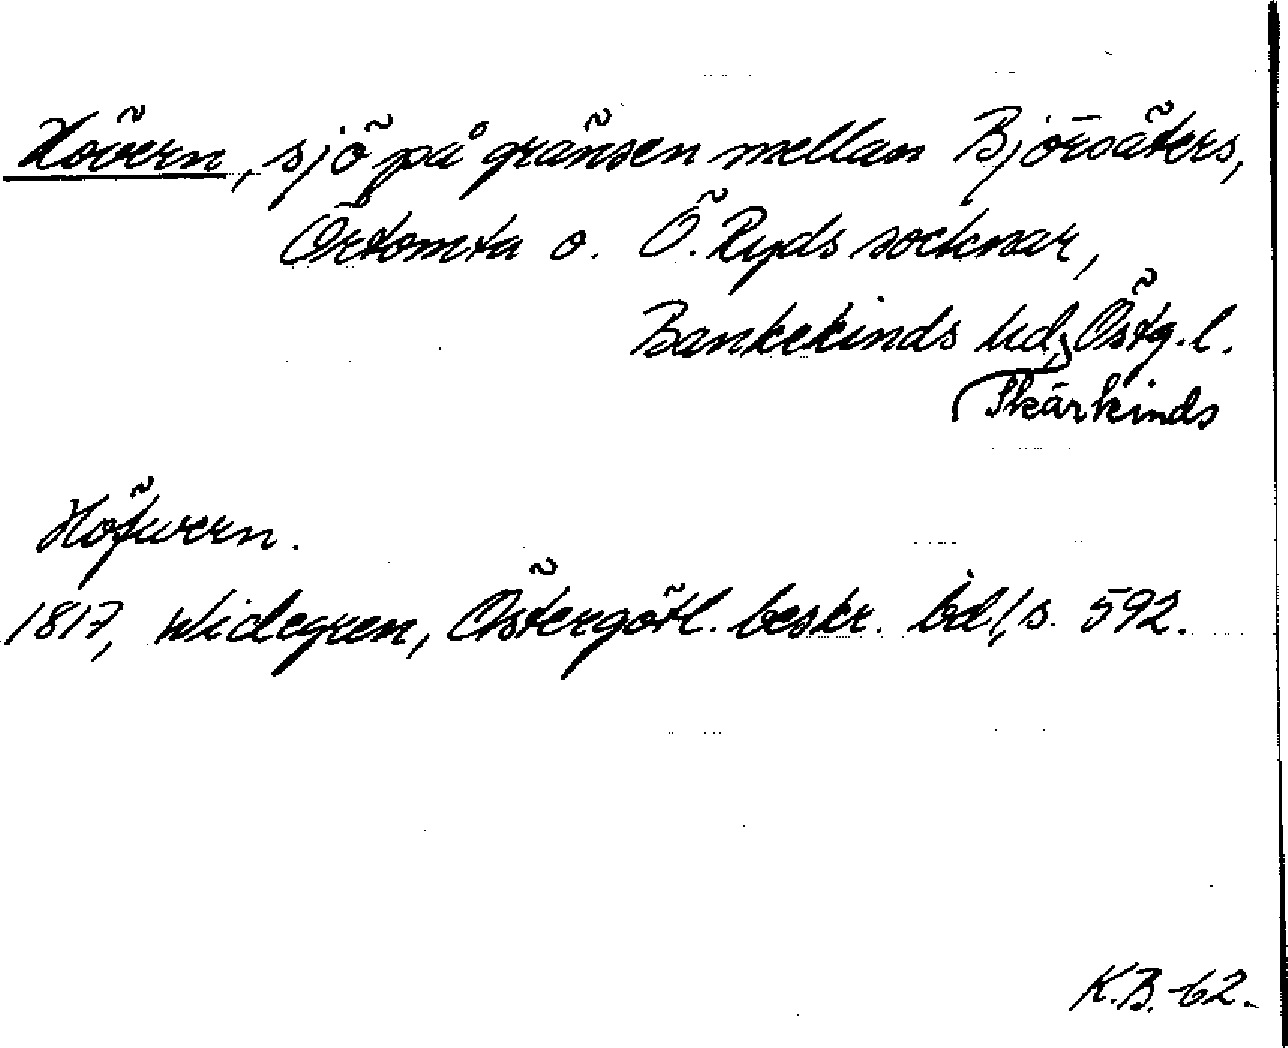 Hövern, sjö på gränsen mellan Björsäters,
Örtomta o. Ö. Ryds socknar,
Bankekinds hd, Östg. l.
Skärkinds
Höfwern.
1817, Widegren, Östergötl. beskr. bd 1, s. 592.
K.B. -62.